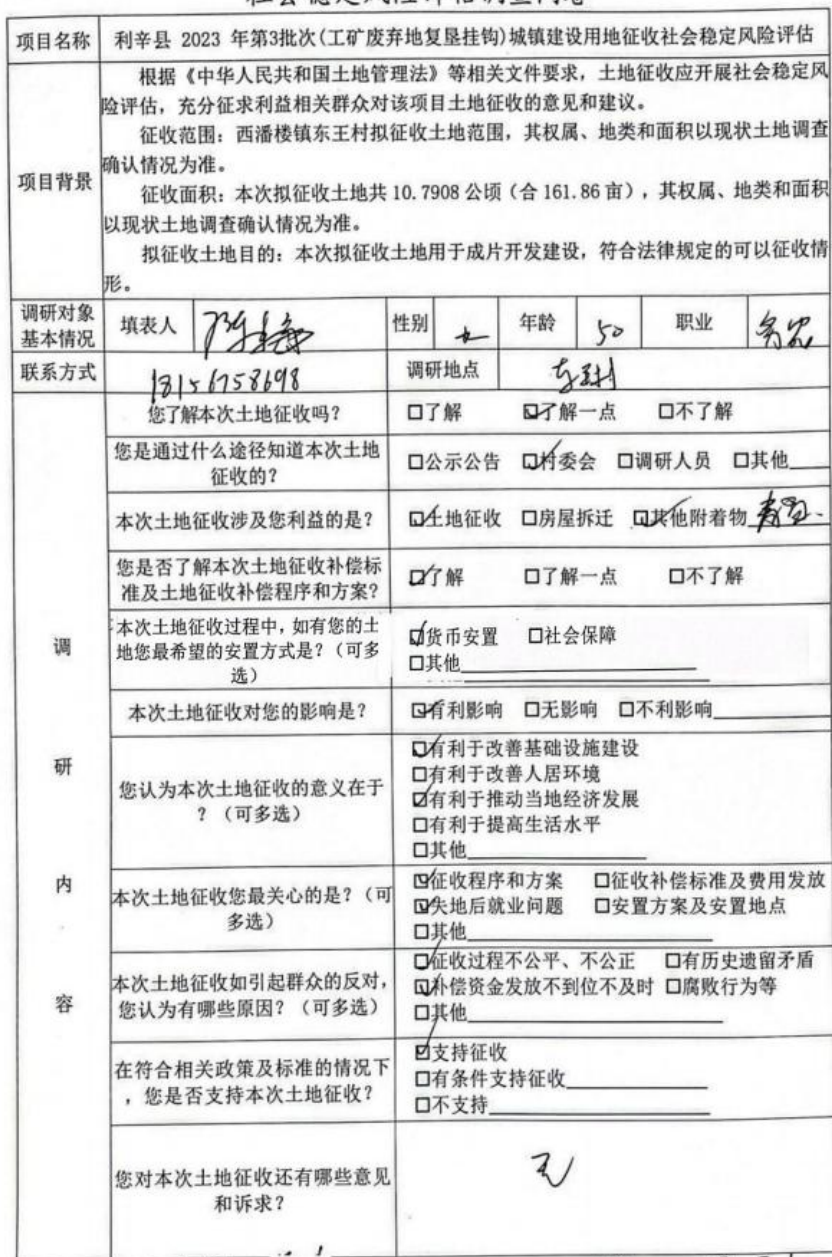 社会稳定风险评估调查问卷
项目名称 利辛县 2023 年第3批次(工矿废弃地复垦挂钩)城镇建设用地征收社会稳定风险评估
项目背景
根据《中华人民共和国土地管理法》等相关文件要求，土地征收应开展社会稳定风
险评估，充分征求利益相关群众对该项目土地征收的意见和建议。
征收范围：西潘楼镇东王村拟征收土地范围，其权属、地类和面积以现状土地调查
确认情况为准。
征收面积：本次拟征收土地共 10.7908 公顷（合 161.86 亩），其权属、地类和面积
以现状土地调查确认情况为准。
拟征收土地目的：本次拟征收土地用于成片开发建设，符合法律规定的可以征收情
形。
调研对象
基本情况
填表人 性别 女 年龄 50 职业 务农
联系方式 18156758698 调研地点 东王村
调
研
内
容
您了解本次土地征收吗？
□了解 ☑了解一点 □不了解
您是通过什么途径知道本次土地
征收的？
□公示公告 ☑村委会 □调研人员 □其他
本次土地征收涉及您利益的是？
☑土地征收 □房屋拆迁 ☑其他附着物 青苗
您是否了解本次土地征收补偿标
准及土地征收补偿程序和方案？
☑了解 □了解一点 □不了解
本次土地征收过程中，如有您的土
地您最希望的安置方式是？（可多
选）
☑货币安置 □社会保障
□其他
本次土地征收对您的影响是？
☑有利影响 □无影响 □不利影响
您认为本次土地征收的意义在于
？（可多选）
☑有利于改善基础设施建设
□有利于改善人居环境
☑有利于推动当地经济发展
□有利于提高生活水平
□其他
本次土地征收您最关心的是？（可
多选）
☑征收程序和方案 □征收补偿标准及费用发放
☑失地后就业问题 □安置方案及安置地点
□其他
本次土地征收如引起群众的反对，
您认为有哪些原因？（可多选）
☑征收过程不公平、不公正 □有历史遗留矛盾
☑补偿资金发放不到位不及时 □腐败行为等
□其他
在符合相关政策及标准的情况下
，您是否支持本次土地征收？
☑支持征收
□有条件支持征收
□不支持
您对本次土地征收还有哪些意见
和诉求？
无